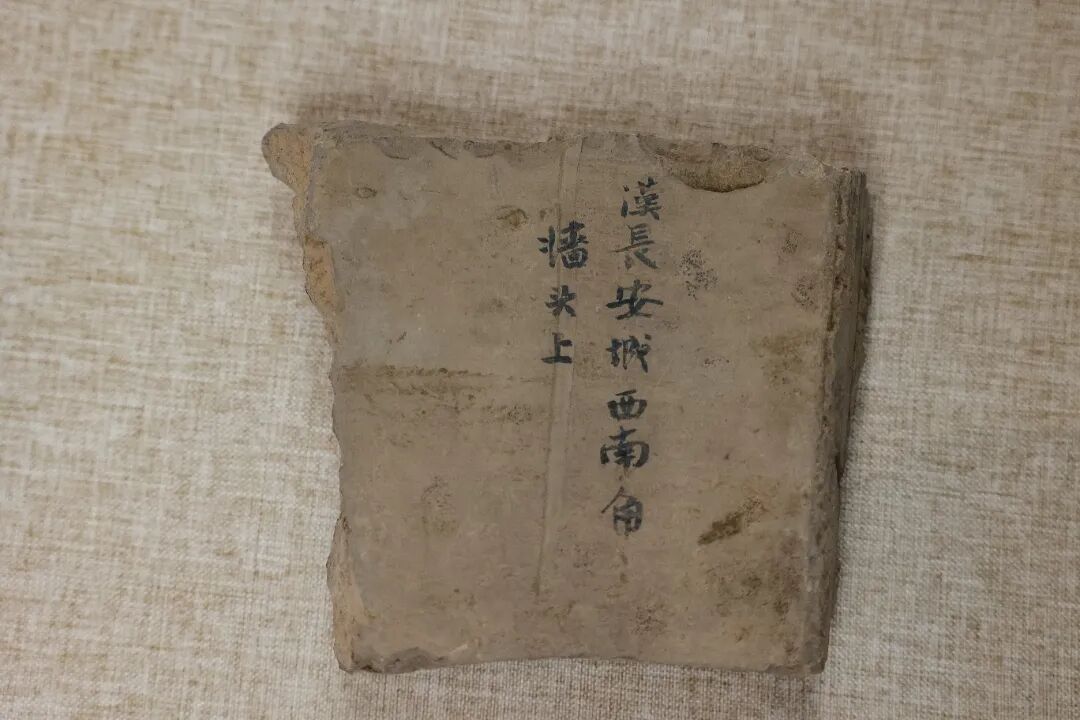 漢長安城西南角
墙头上